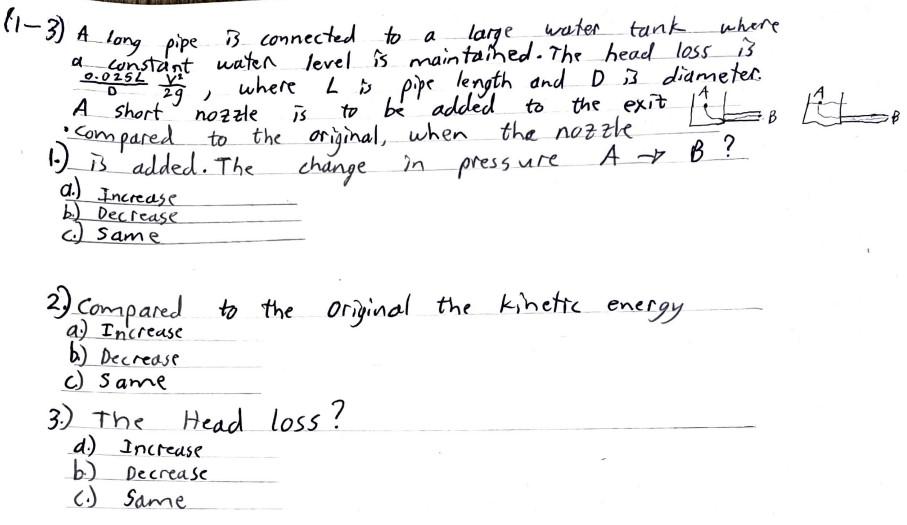 (1-3) A long pipe is connected to a large water tank where
a constant water level is maintained. The head loss is
0.025L/D V²/2g , where L is pipe length and D is diameter.
A short nozzle is to be added to the exit
A B A B
• Compared to the original, when the nozzle
1.) is added. The change in pressure A → B ?
a.) Increase
b.) Decrease
c.) Same
2.) Compared to the original the kinetic energy
a.) Increase
b.) Decrease
c.) Same
3.) The Head loss ?
a.) Increase
b.) Decrease
c.) Same